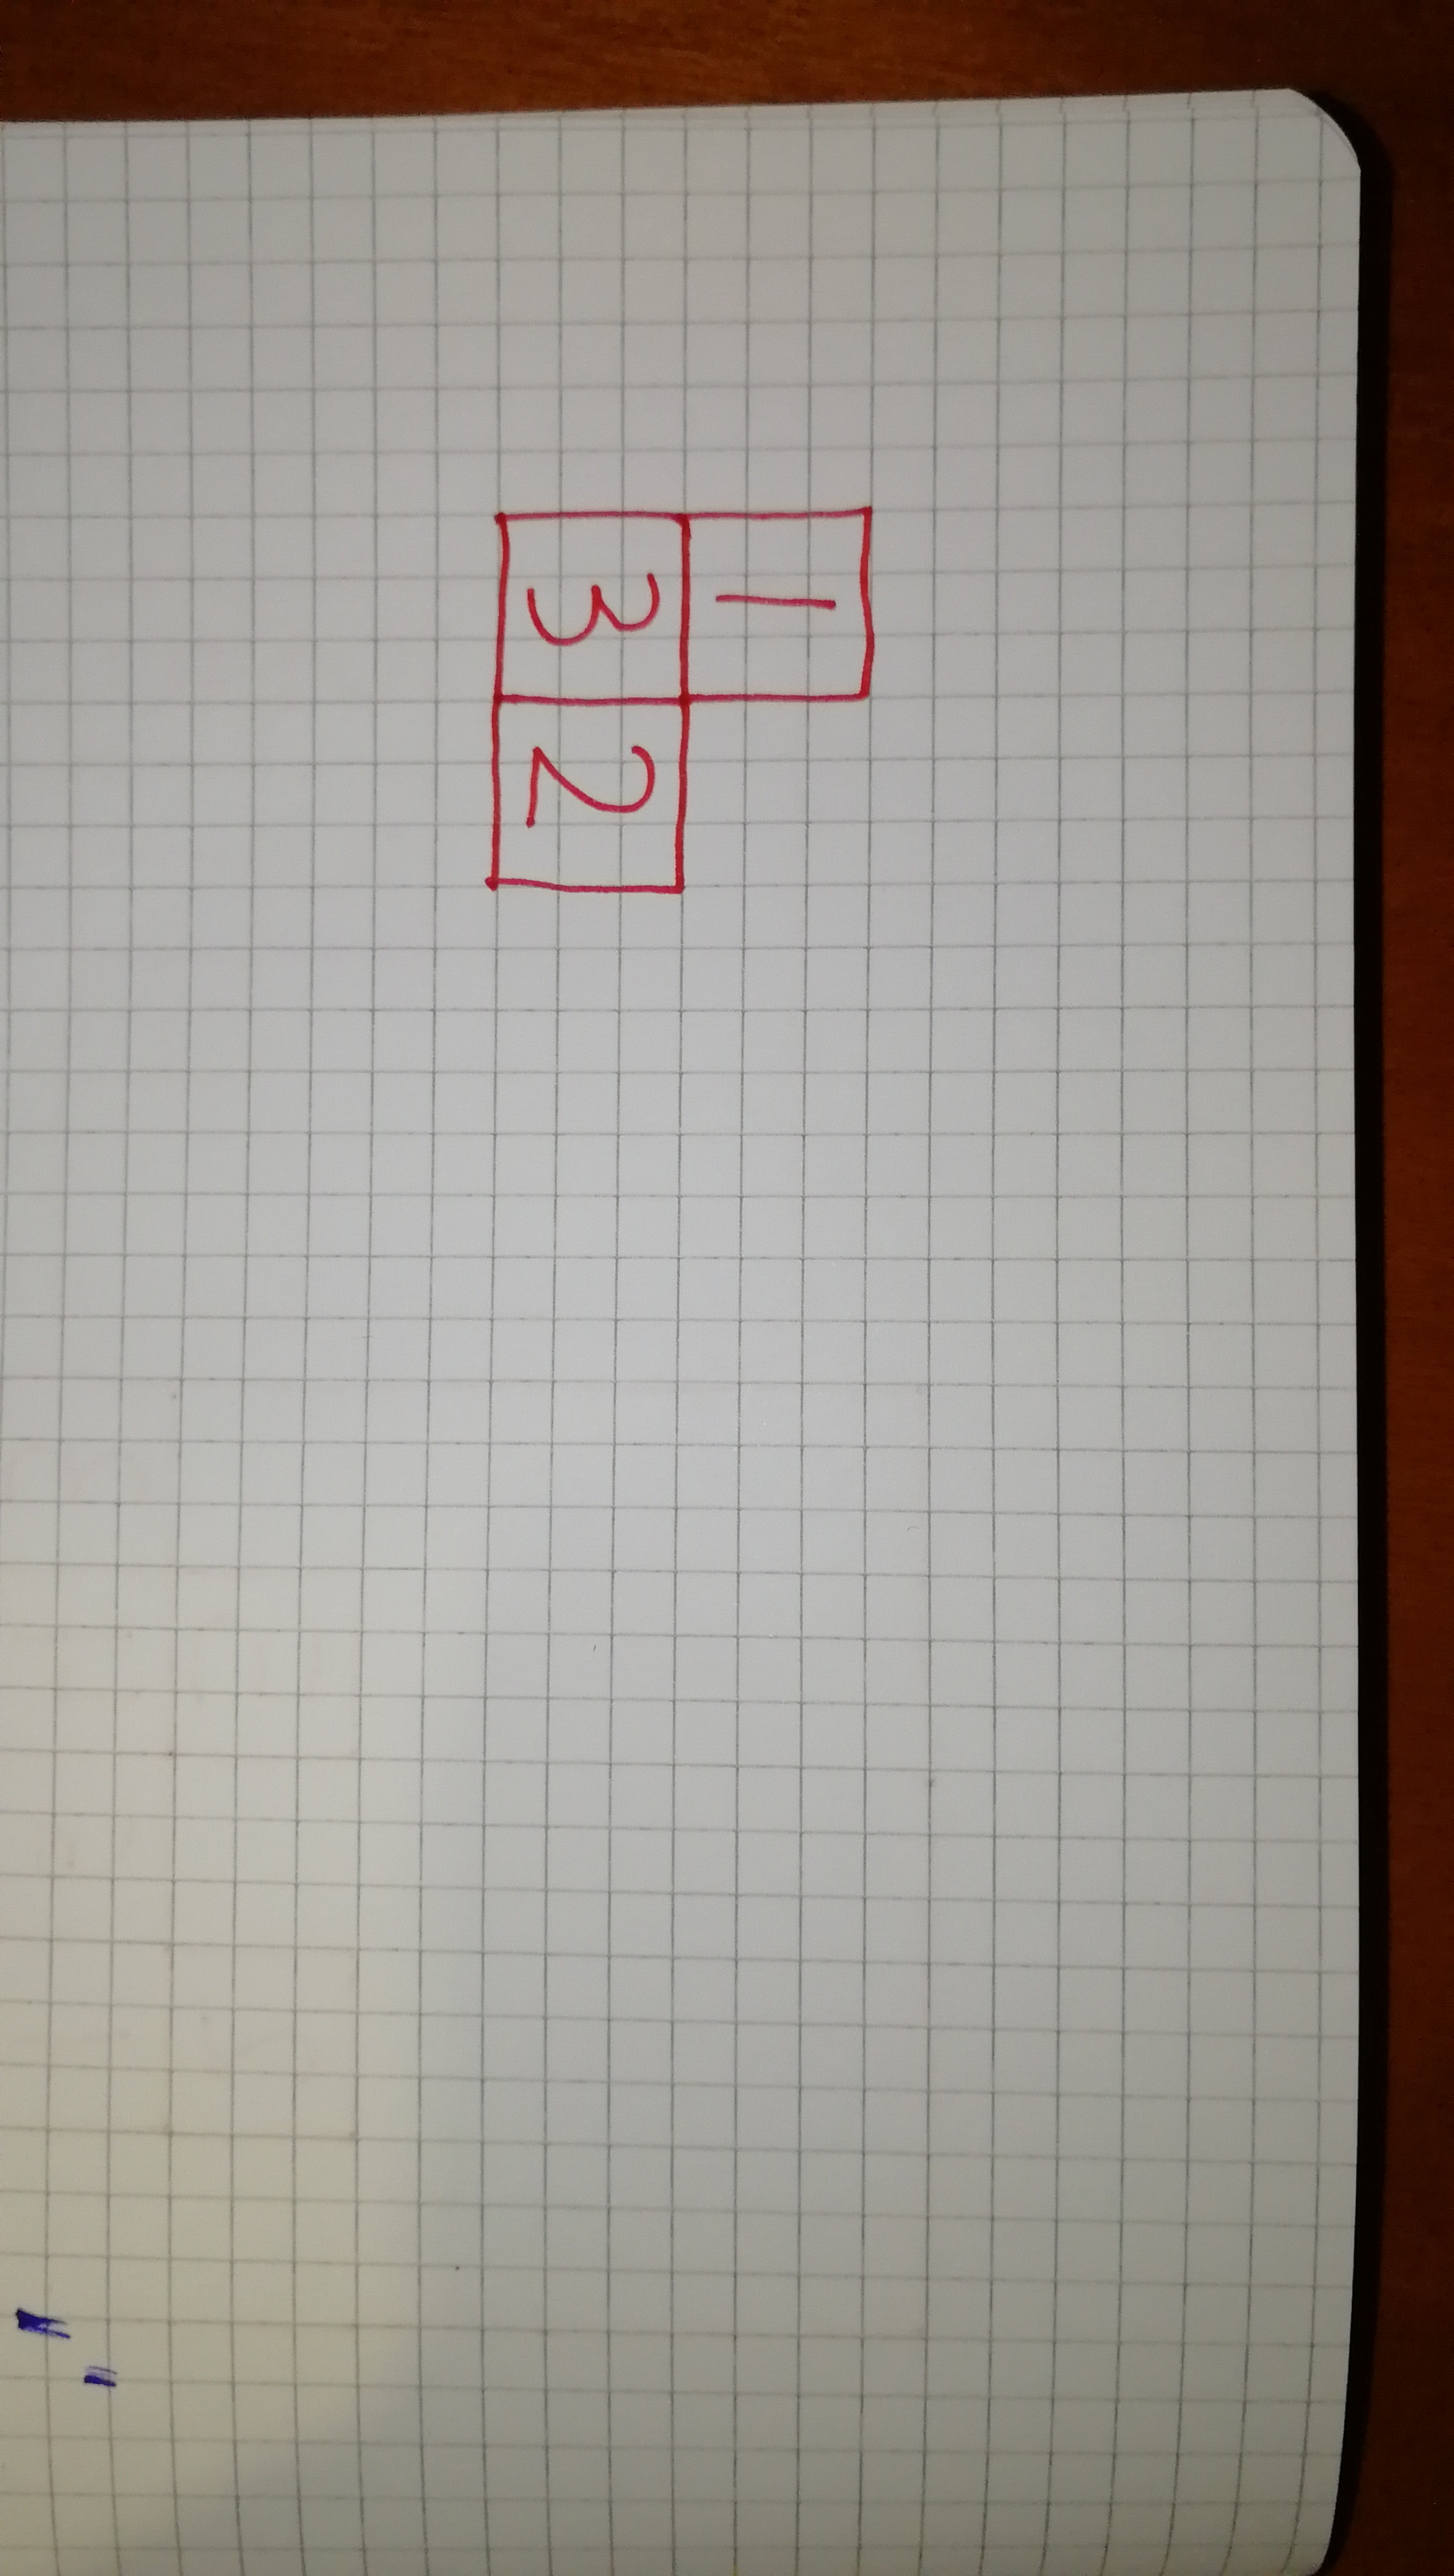 1
3 2